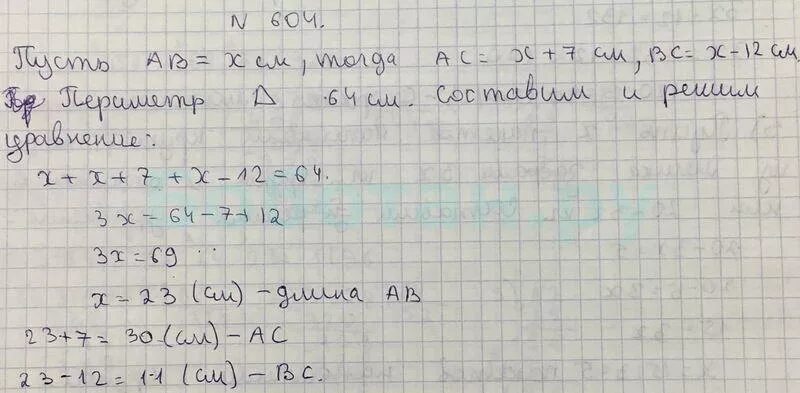 N 604.
Пусть AB = x см, тогда AC = x + 7 см, BC = x - 12 см.
Периметр Δ 64 см. Составим и решим
уравнение:
x + x + 7 + x - 12 = 64.
3x = 64 - 7 + 12
3x = 69
x = 23 (см) - длина AB
23 + 7 = 30 (см) - AC
23 - 12 = 11 (см) - BC.